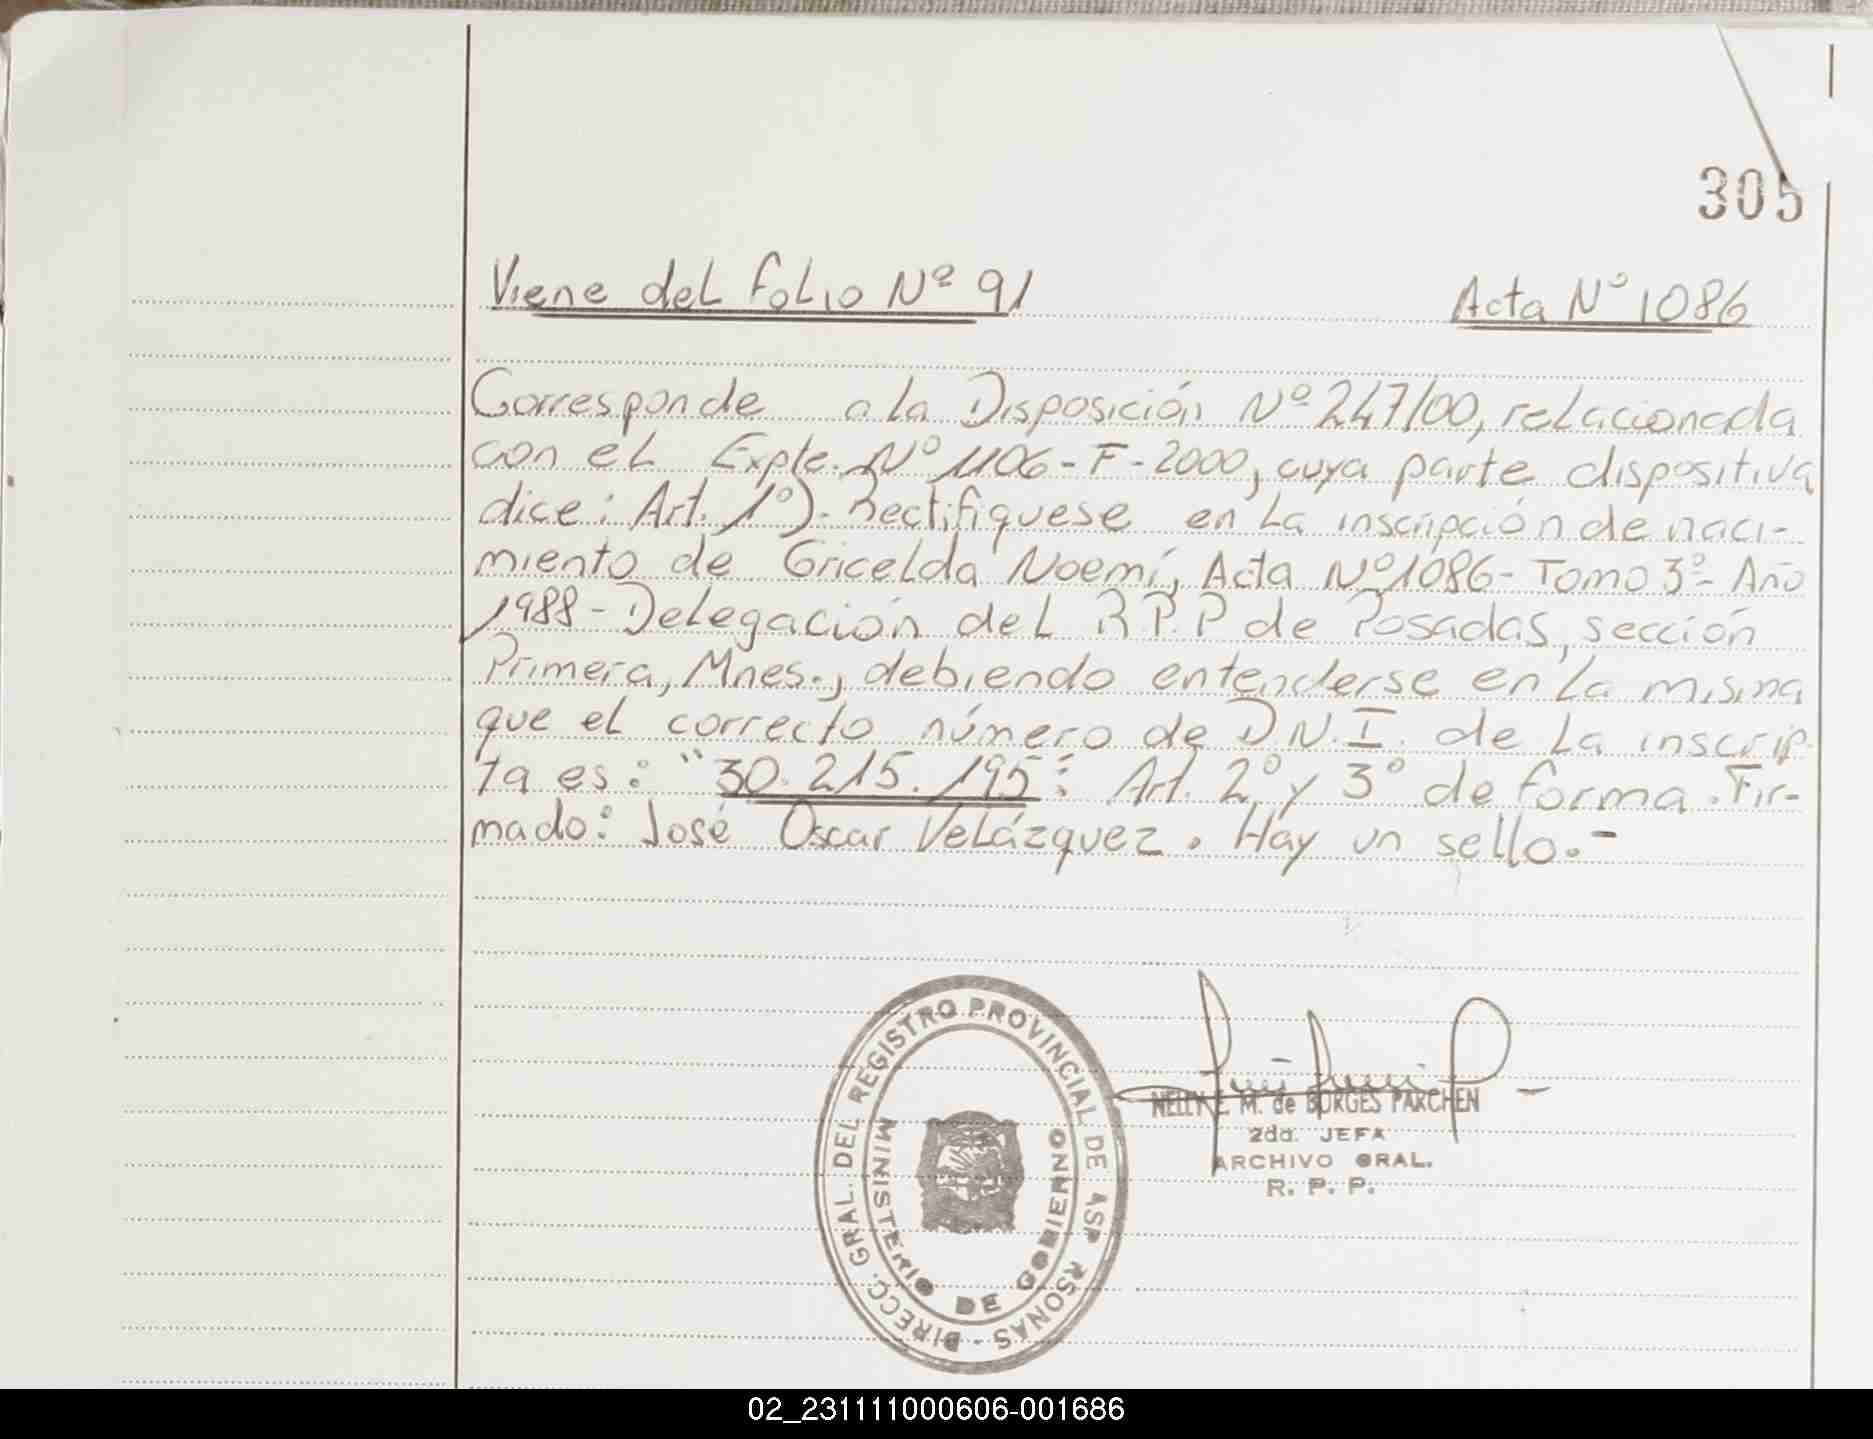 305
Viene del folio Nº 91 Acta Nº 1086
Corresponde a la Disposición Nº 247/00, relacionada
con el Expte. Nº 1106-F-2000, cuya parte dispositiva
dice: Art. 1º). Rectifíquese en la inscripción de naci-
miento de Gricelda Noemí, Acta Nº 1086- Tomo 3º- Año
1988- Delegación del R.P.P de Posadas, sección
Primera, Mnes., debiendo entenderse en la misma
que el correcto número de D.N.I. de la inscrip-
ta es: "30.215.195". Art. 2º y 3º de forma. Fir-
mado: José Oscar Velázquez. Hay un sello.-
DIRECC. GRAL. DEL REGISTRO PROVINCIAL DE AS P RSONAS -
MINISTERIO DE GOBIERNO
NELLY E. M. de BORGES PARCHEN
2da. JEFA
ARCHIVO GRAL.
R. P. P.
02_231111000606-001686